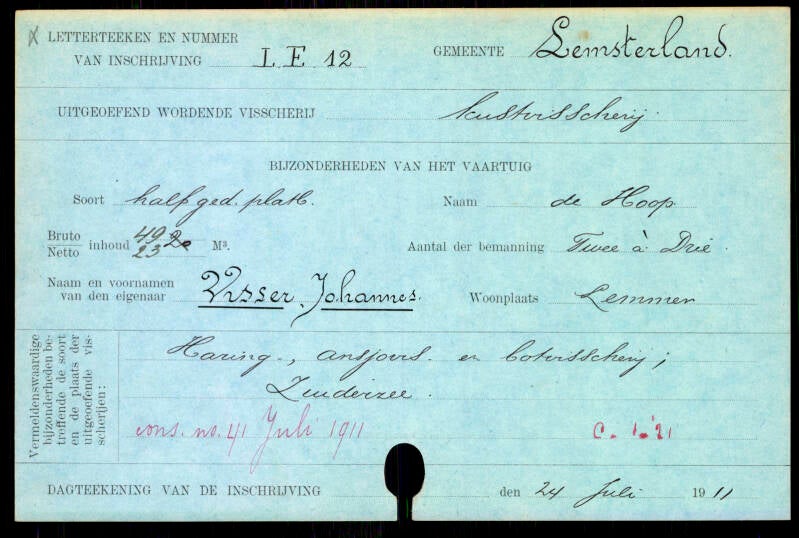 LETTERTEEKEN EN NUMMER
VAN INSCHRIJVING L E 12 GEMEENTE Lemsterland.
UITGEOEFEND WORDENDE VISSCHERIJ kustvisscherij.
BIJZONDERHEDEN VAN HET VAARTUIG
Soort half ged. platb. Naam de Hoop
Bruto 49
Netto inhoud 23 M³. Aantal der bemanning Twee à Drie.
Naam en voornamen
van den eigenaar Visser, Johannes. Woonplaats Lemmer
Vermeldenswaardige
bijzonderheden be-
treffende de soort
en de plaats der
uitgeoefende vis-
scherijen:
Haring-, ansjovis- en botvisscherij;
Zuiderzee.
cons. no. 41 Juli 1911 C. 1-'21
DAGTEEKENING VAN DE INSCHRIJVING den 24 Juli 1911